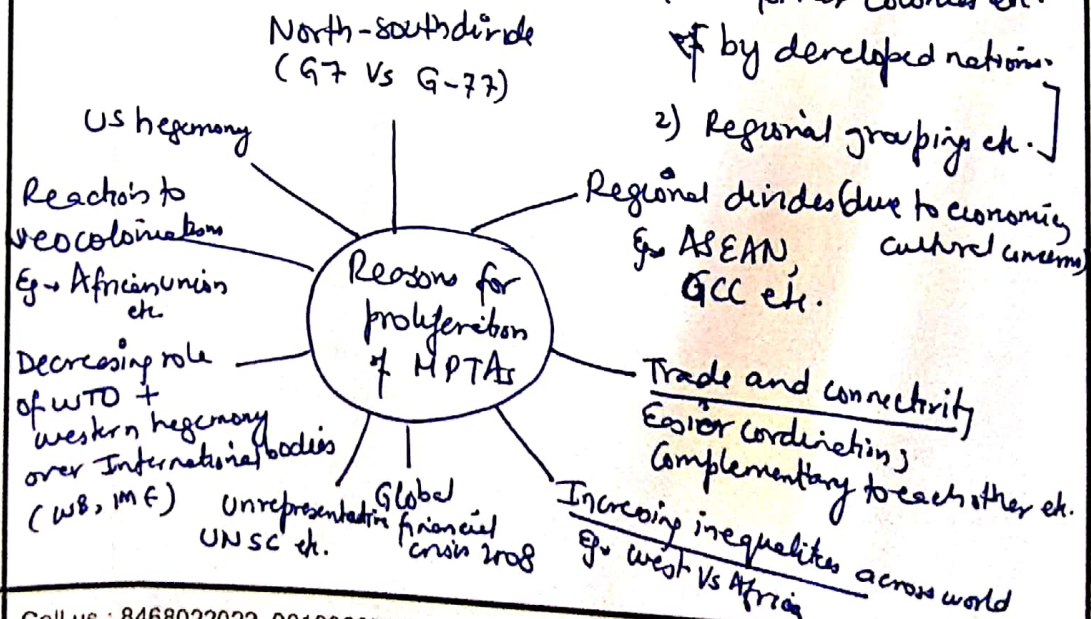 by developed nations.
2) Regional groupings etc.
North-south divide
(G7 Vs G-77)
US hegemony
Reaction to
neocolonialisms
Eg → African union
etc.
Decreasing role
of WTO +
western hegemony
over International bodies
(WB, IMF)
Unrepresentative
UNSC etc.
Global
financial
crisis 2008
Reasons for
proliferation
of MPTAs
Regional divides (due to economic,
cultural concerns)
Eg → ASEAN,
GCC etc.
Trade and connectivity
Easier cordination,
Complementary to each other etc.
Increasing inequalities across world
Eg → West Vs Africa
Call us : 8468022022,